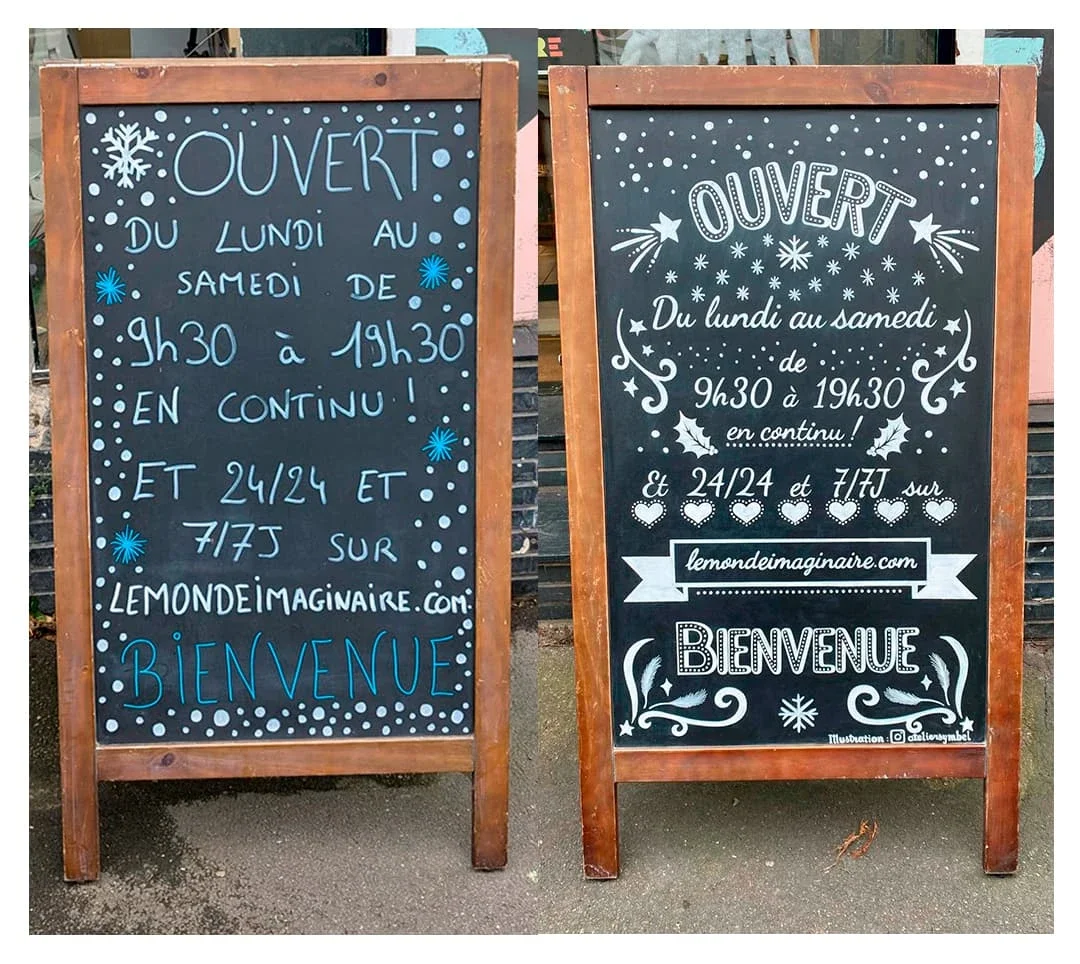 OUVERT
DU LUNDI AU
SAMEDI DE
9h30 à 19h30
EN CONTINU !
ET 24/24 ET
7/7J SUR
LEMONDEIMAGINAIRE.COM
BIENVENUE
RE
OUVERT
Du lundi au samedi
de
9h30 à 19h30
en continu !
Et 24/24 et 7/7J sur
lemondeimaginaire.com
BIENVENUE
Illustration : ateliersymbel